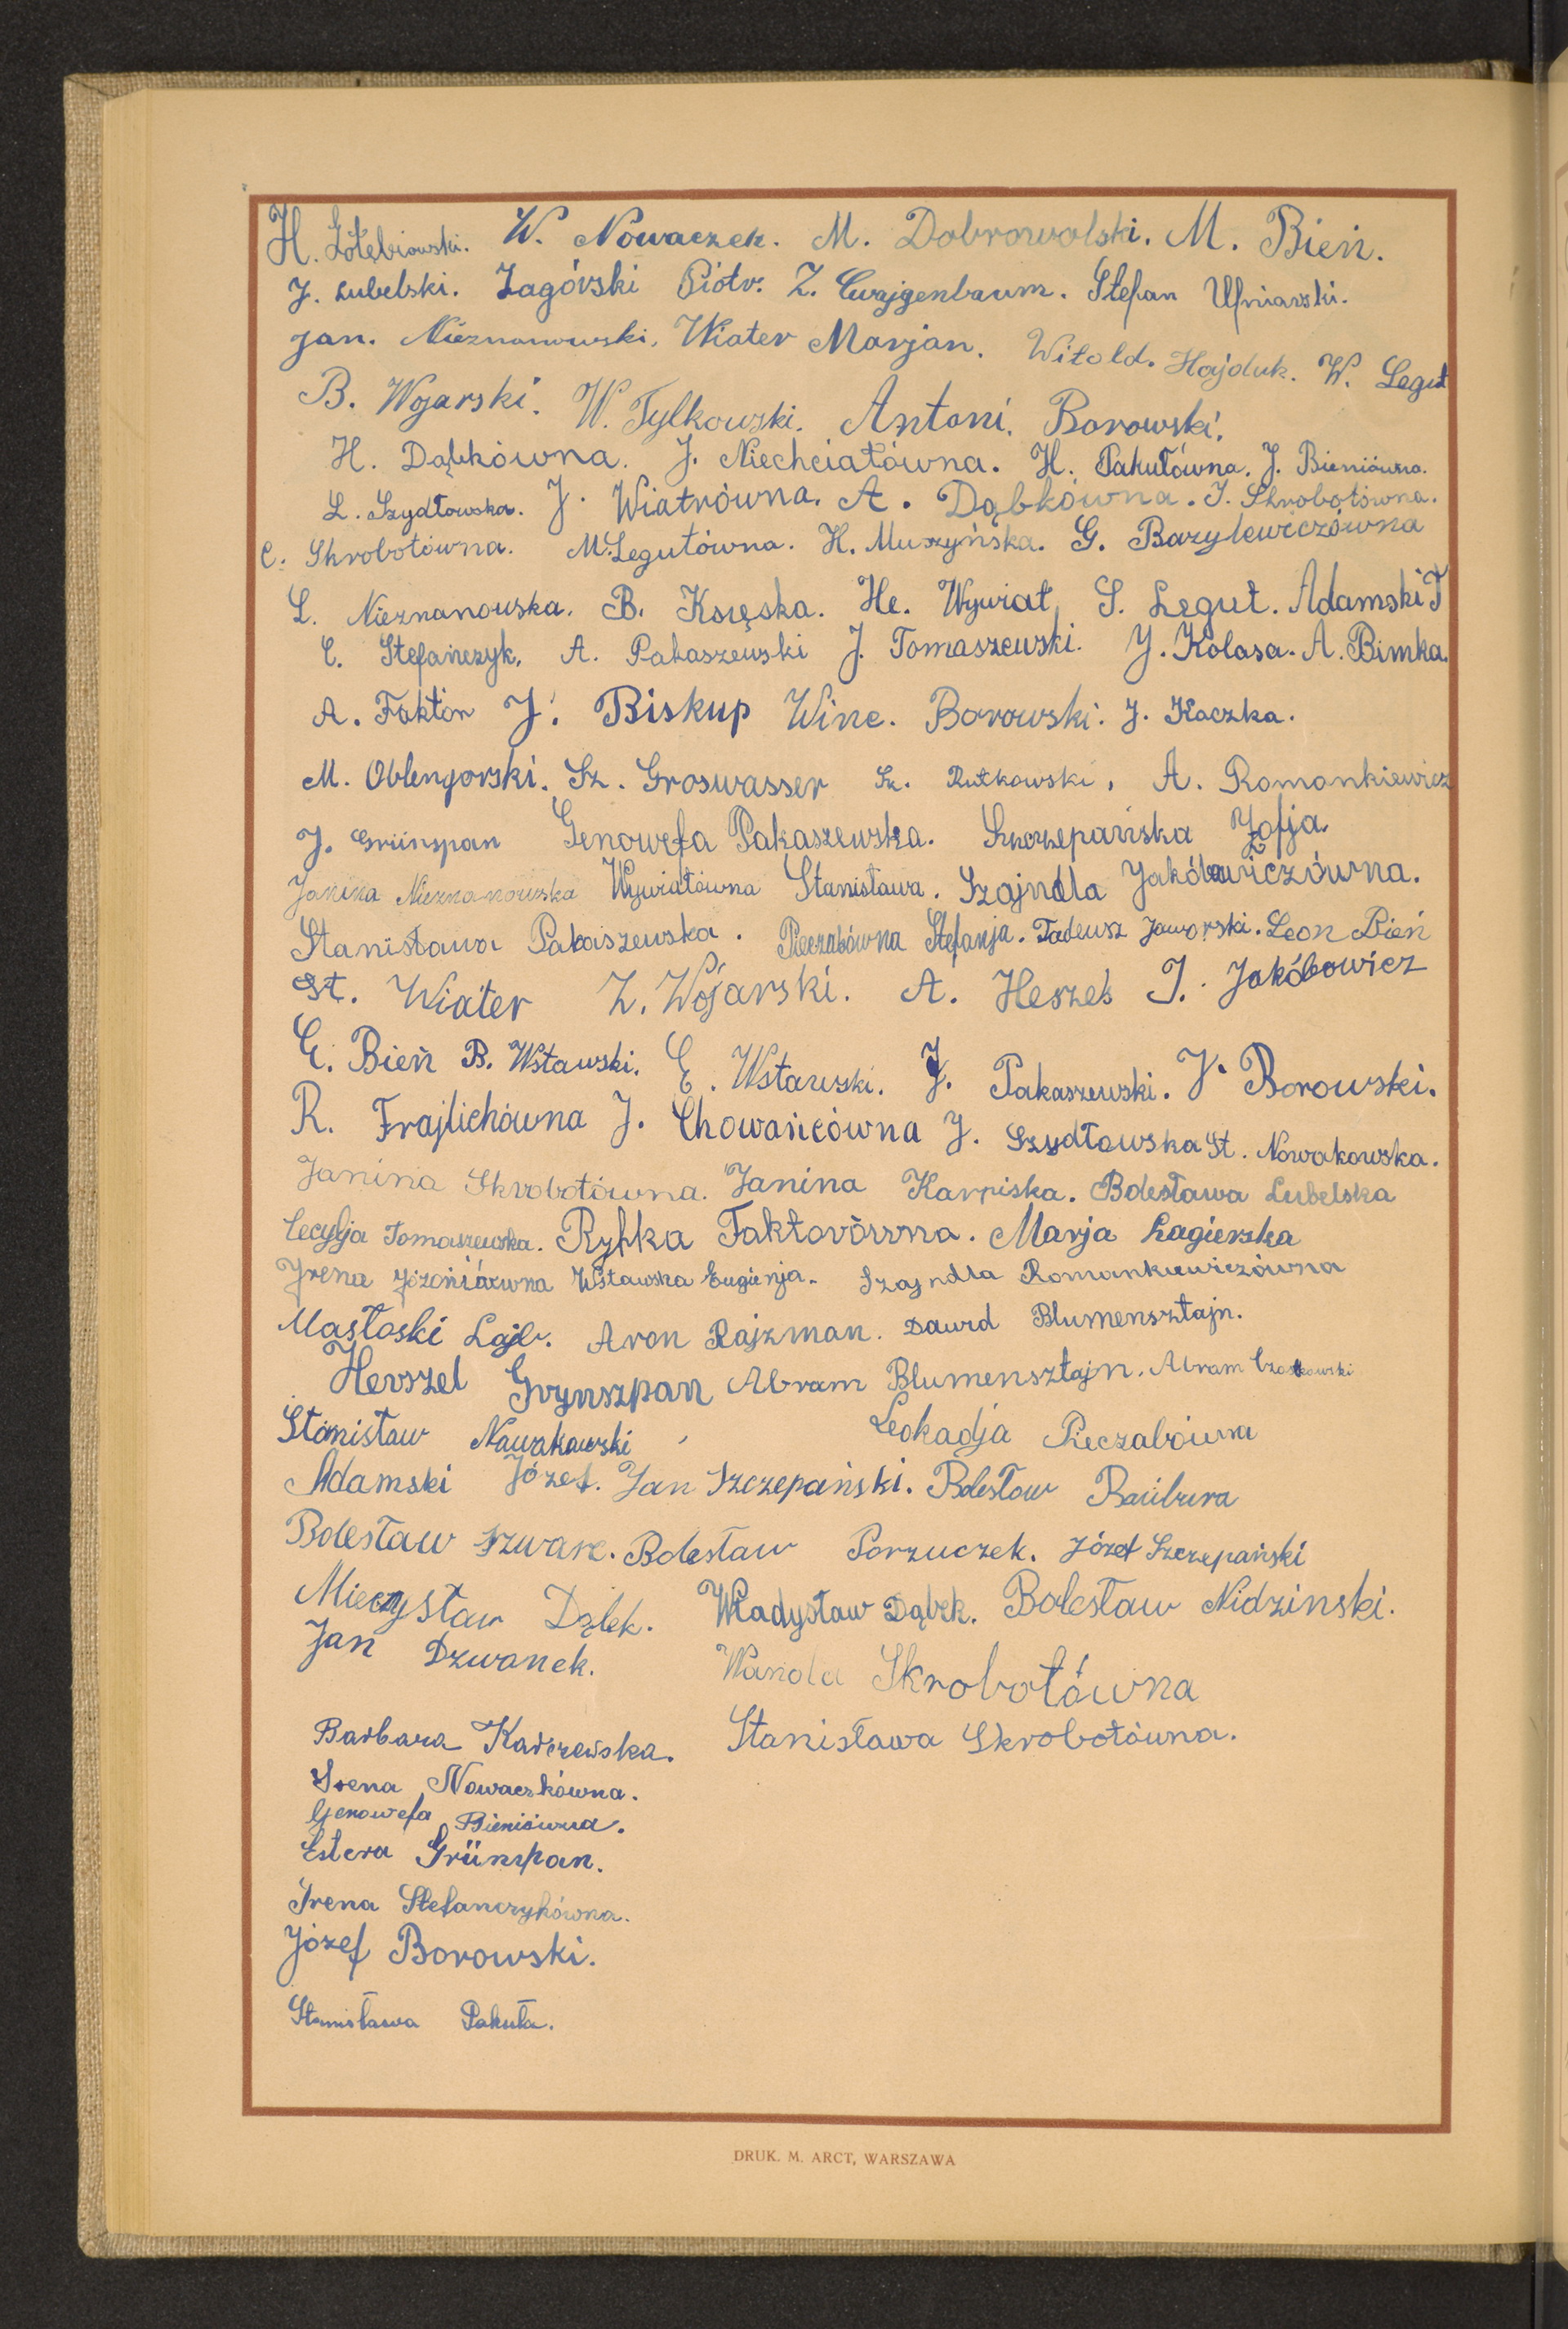 H. Gołębiowski. W. Nowaczek. M. Dobrowolski. M. Bień.
J. Lubelski. Zagórski Piotr. Z. Cwajgenbaum. Stefan Ufniarski.
Jan. Nieznanowski, Wiater Marjan. Witold. Hajduk. W. Legut
B. Wojarski. W. Tylkowski. Antoni. Borowski.
H. Dąbkówna. J. Niechciałówna. H. Pakułówna. J. Bieniówna.
L. Szydłowska. J. Wiatrówna. A. Dąbkówna. J. Skrobotówna.
C. Skrobotówna. M. Legutówna. H. Muszyńska. G. Bazylewiczówna
L. Nieznanowska. B. Ksręska. He. Wywiat, S. Legut. Adamski T
C. Stefańczyk, A. Pakaszewski J. Tomaszewski. J. Kolasa. A. Bimka.
A. Faktor J. Biskup Winc. Borowski. J. Kaczka.
M. Oblengorski. Sz. Groswasser Sz. Rutkowski, A. Romankiewicz
J. Grünspan Genowefa Pakaszewska. Szczepańska Zofja.
Janina Nieznanowska Wywiatówna Stanisława. Szajndla Jakóbowiczówna.
Stanisława Pakaszewska. Pieczabówna Stefanja. Tadeusz Jaworski. Leon Bień
St. Wiater Z. Wójarski. A. Heszes J. Jakóbowicz
E. Bień B. Wstawski. E. Wstawski. J. Pakaszewski. J. Borowski.
R. Frajlichówna J. Chowańcówna J. Szydłowska St. Nowakowska.
Janina Skrobotówna. Janina Karpiska. Bolesława Lubelska
Cecylja Tomaszewska. Ryfka Faktorówna. Marja Łagierska
Irena Wstawska Eugienja. Szajndla Romankiewiczówna
Masłoski Lajb. Aron Rajzman. Dawid Blumensztajn.
Herszel Grynszpan Abram Blumensztajn. Abram
Stanisław Nawakawski Leokadja Pieczabówna
Adamski Józef. Jan Szczepański. Bolesław Banbura
Bolesław Szwarc. Bolesław Porzuczek. Józef Szczepański
Mieczysław Dąbek. Władysław Dąbek. Bolesław Nidzinski.
Jan Dzwanek. Wanda Skrobotówna
Barbara Karczewska. Stanisława Skrobotówna.
Irena Nowaczkówna.
Genowefa Bieniówna.
Estera Grünspan.
Irena Stefanczykówna.
Józef Borowski.
Stanisława Pakuła.
DRUK. M. ARCT, WARSZAWA